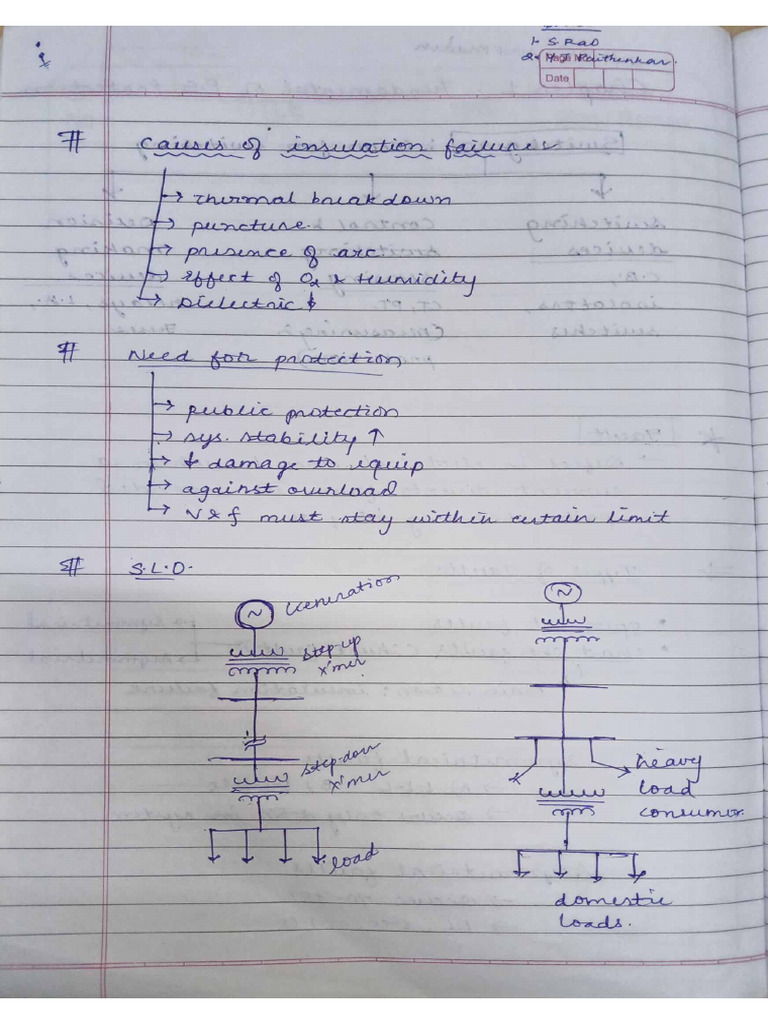 1. S. Rao
2. Y.G. Paithankar.
Page No.
Date
# Causes of insulation failures
→ Thermal breakdown
→ puncture.
→ presence of arc
→ Effect of O₂ & Humidity
→ Dielectric ↓
# Need for protection
→ public protection
→ sys. stability ↑
→ ↓ damage to equip
→ against overload
→ V & f must stay within certain limit
# S.L.D.
~ Generation
step-up
x'mer
step-down
x'mer
load
~
heavy
load
consumer.
domestic
loads.